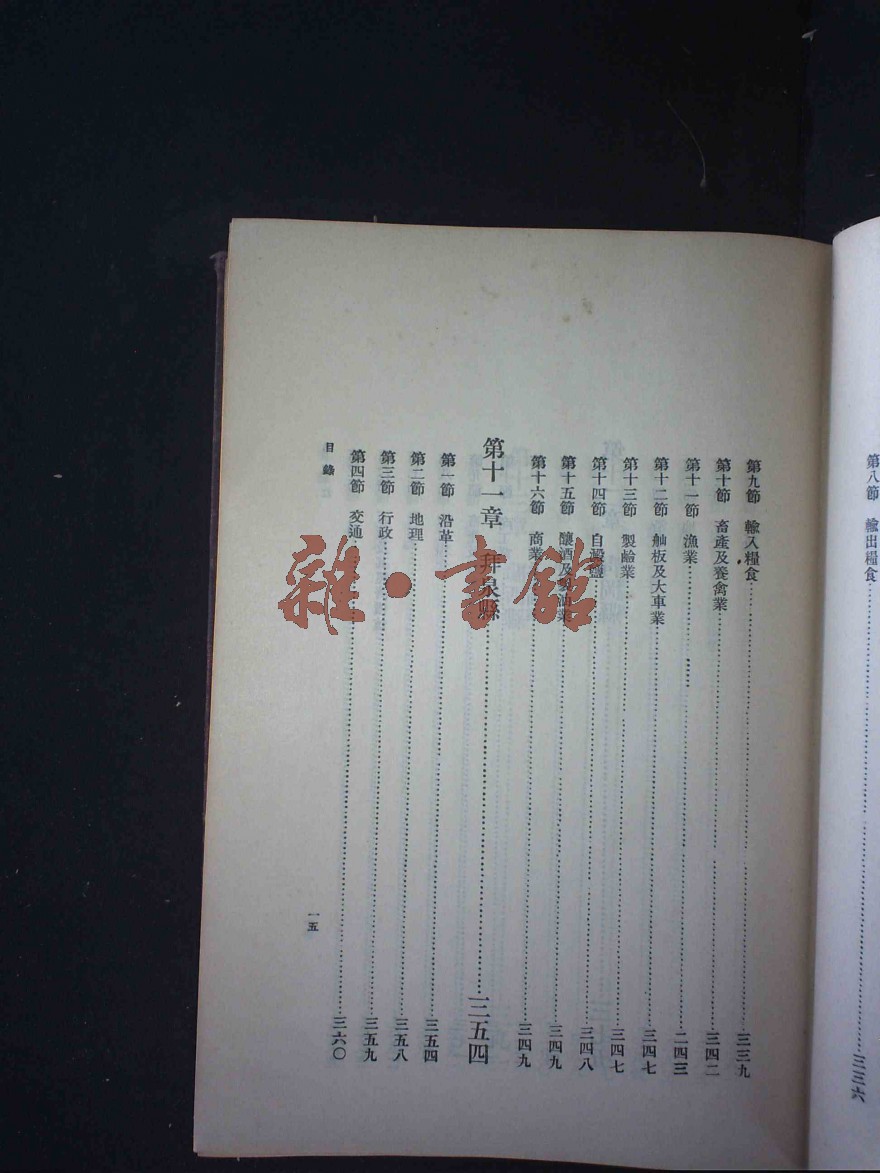 第八節 輸出糧食……三三六
第九節 輸入糧食……三三九
第十節 畜產及養禽業……三四二
第十一節 漁業……二四三
第十二節 舢板及大車業……三四七
第十三節 製鹼業……三四七
第十四節 自澱鹽……三四八
第十五節 釀酒及製油業……三四九
第十六節 商業……三四九
第十一章 拜泉縣……三五四
第一節 沿革……三五四
第二節 地理……三五八
第三節 行政……三五九
第四節 交通……三六〇
目錄
一五
雜·書館